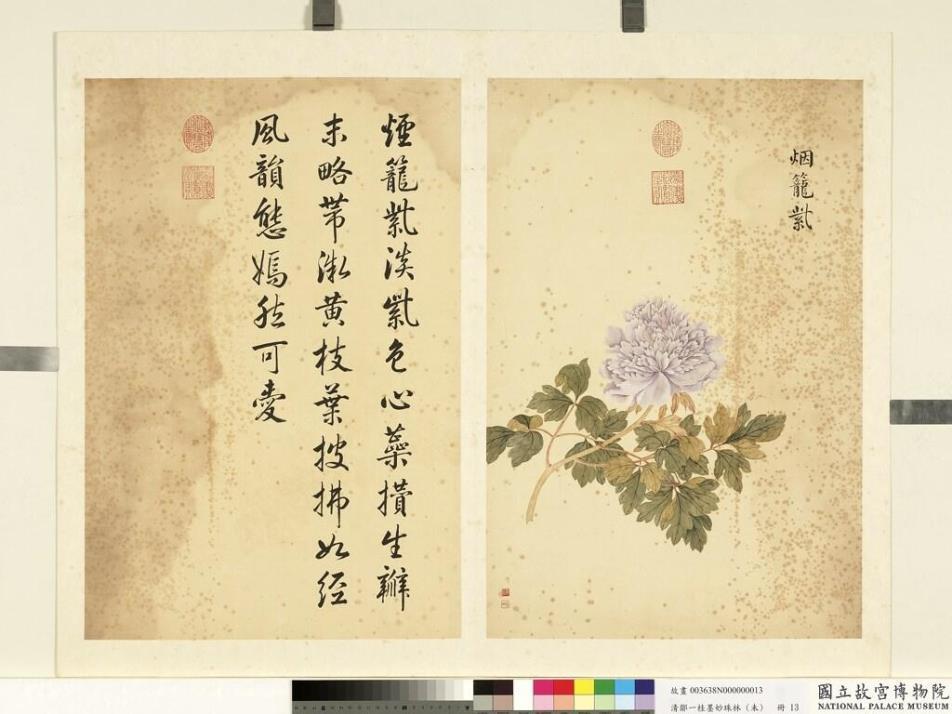 烟籠紫
煙籠紫淡紫色心蘂攢生瓣
末略帶微黄枝葉披拂如經
風韻態嫣然可愛
故畫 003638N000000013
清鄒一桂墨妙珠林（未） 冊 13
國立故宮博物院
NATIONAL PALACE MUSEUM